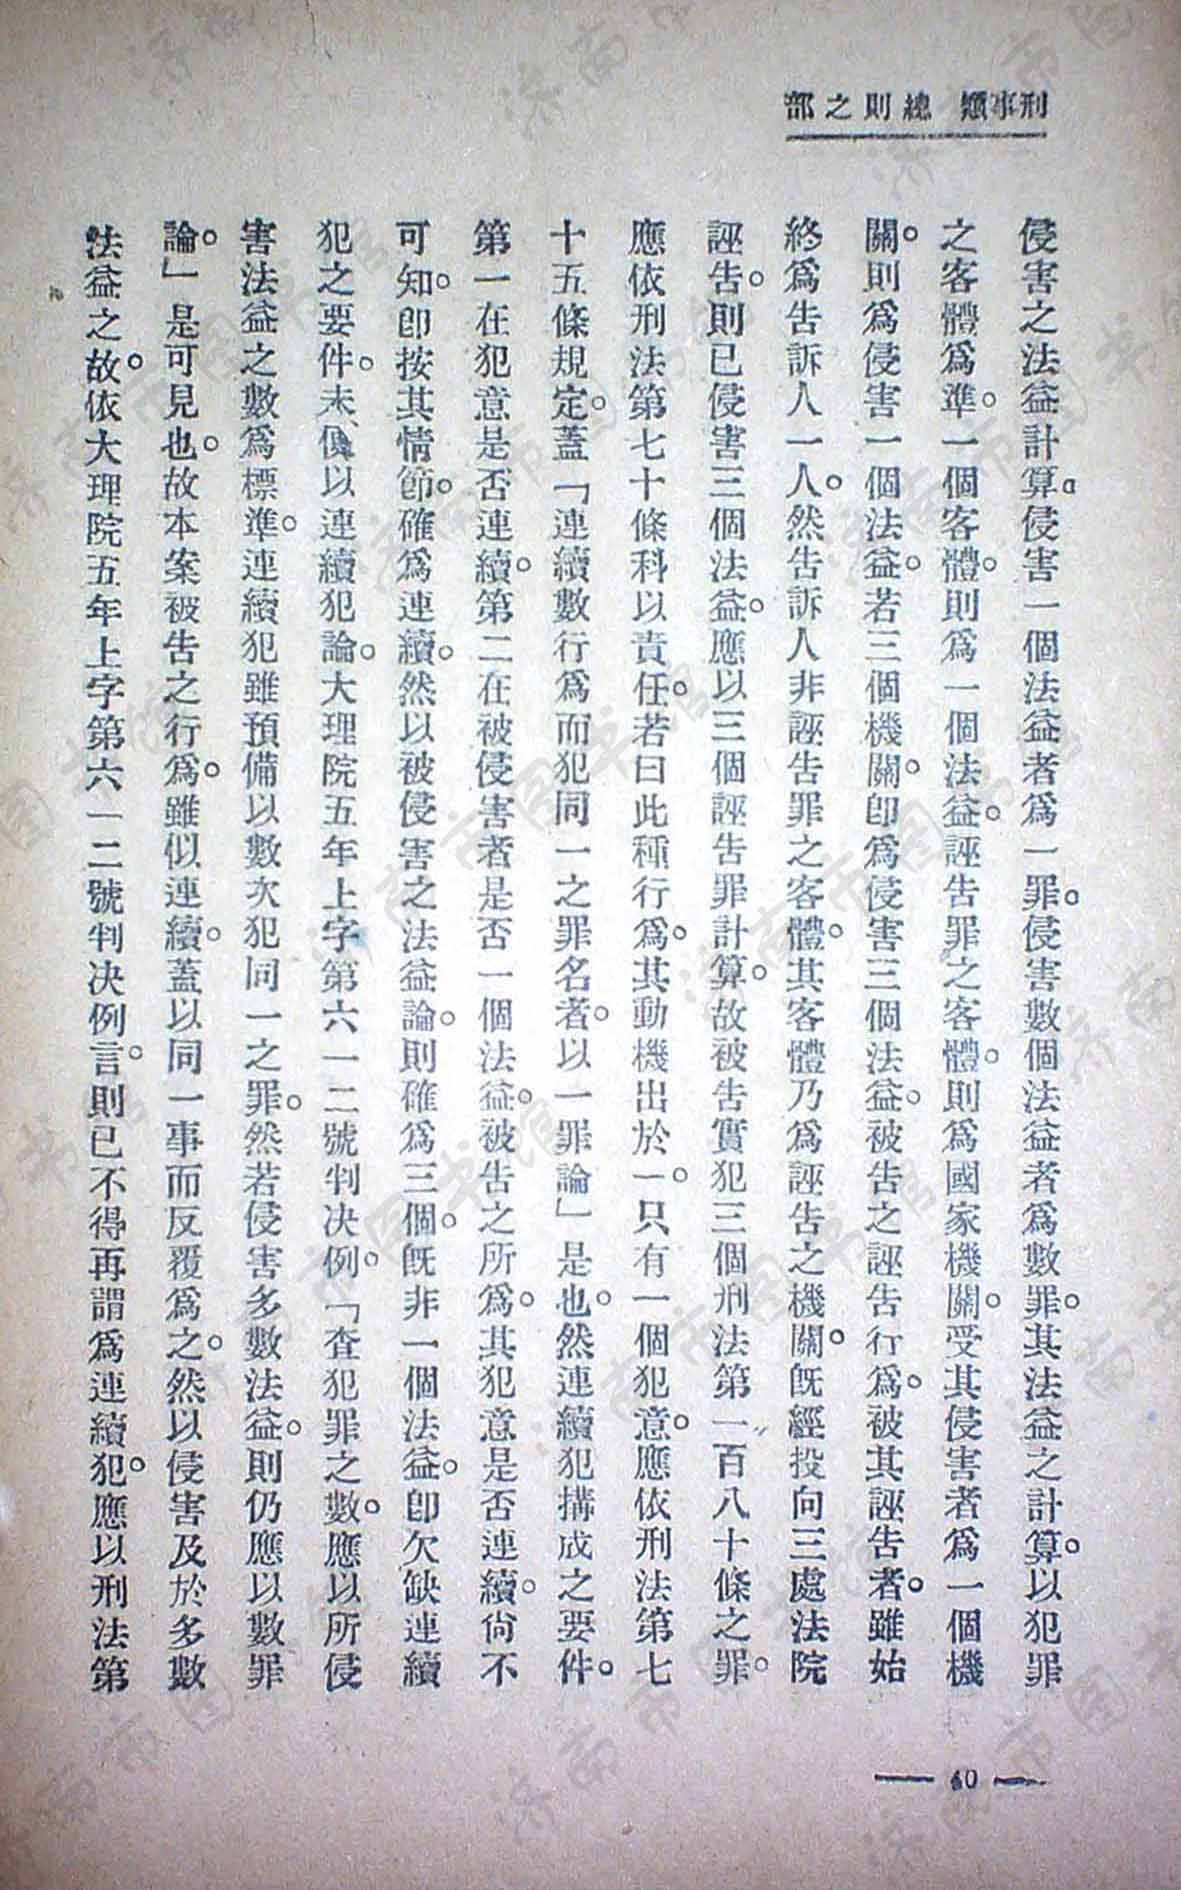 刑事類　總則之部
侵害之法益計算。侵害一個法益者爲一罪。侵害數個法益者爲數罪。其法益之計算。以犯罪
之客體爲準。一個客體。則爲一個法益。誣告罪之客體。則爲國家機關。受其侵害者爲一個機
關。則爲侵害一個法益。若三個機關。卽爲侵害三個法益。被告之誣告行爲。被其誣告者。雖始
終爲告訴人一人。然告訴人非誣告罪之客體。其客體乃爲誣告之機關。旣經投向三處法院
誣告。則已侵害三個法益。應以三個誣告罪計算。故被告實犯三個刑法第一百八十條之罪。
應依刑法第七十條科以責任。若曰此種行爲。其動機出於一。只有一個犯意。應依刑法第七
十五條規定。蓋「連續數行爲而犯同一之罪名者。以一罪論」是也。然連續犯搆成之要件。
第一在犯意是否連續。第二在被侵害者是否一個法益。被告之所爲。其犯意是否連續。尙不
可知。卽按其情節。確爲連續。然以被侵害之法益論。則確爲三個。旣非一個法益。卽欠缺連續
犯之要件。未便以連續犯論。大理院五年上字第六一二號判決例。「查犯罪之數。應以所侵
害法益之數爲標準。連續犯雖預備以數次犯同一之罪。然若侵害多數法益。則仍應以數罪
論。」是可見也。故本案被告之行爲。雖似連續。蓋以同一事而反覆爲之。然以侵害及於多數
法益之故。依大理院五年上字第六一二號判決例言。則已不得再謂爲連續犯。應以刑法第
— 40 —
济南市图书馆